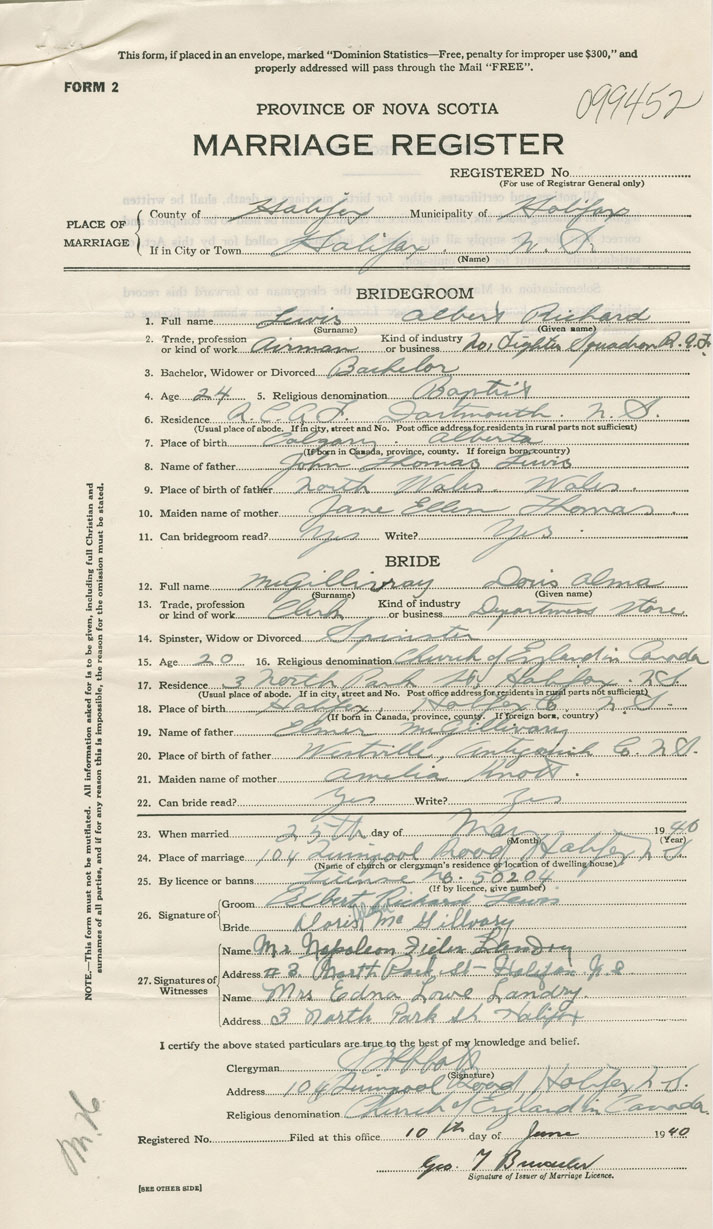 This form, if placed in an envelope, marked "Dominion Statistics—Free, penalty for improper use $300," and
properly addressed will pass through the Mail "FREE".
FORM 2
099452
PROVINCE OF NOVA SCOTIA
MARRIAGE REGISTER
REGISTERED No.
(For use of Registrar General only)
PLACE OF MARRIAGE
County of Halifax Municipality of Halifax
If in City or Town Halifax, N. S.
(Name)
BRIDEGROOM
1. Full name Lewis Albert Richard
(Surname) (Given name)
2. Trade, profession or kind of work Airman Kind of industry or business No 1 Fighter Squadron R.C.A.F.
3. Bachelor, Widower or Divorced Bachelor
4. Age 24 5. Religious denomination Baptist
6. Residence R.C.A.F. Dartmouth. N. S.
(Usual place of abode. If in city, street and No. Post office address for residents in rural parts not sufficient)
7. Place of birth Calgary. Alberta
(If born in Canada, province, county. If foreign born, country)
8. Name of father John Thomas Lewis
9. Place of birth of father North Wales. Wales.
10. Maiden name of mother Jane Ellen Thomas.
11. Can bridegroom read? Yes Write? Yes.
BRIDE
12. Full name McGillivray Doris Alma
(Surname) (Given name)
13. Trade, profession or kind of work Clerk Kind of industry or business Department store
14. Spinster, Widow or Divorced Spinster
15. Age 20 16. Religious denomination Church of England in Canada
17. Residence 3 North Park St, Halifax. N.S.
(Usual place of abode. If in city, street and No. Post office address for residents in rural parts not sufficient)
18. Place of birth Halifax, Halifax C. N. S.
(If born in Canada, province, county. If foreign born, country)
19. Name of father Elmer McGillivary
20. Place of birth of father Westville, Antigonish C. N.S.
21. Maiden name of mother Amelia Knott.
22. Can bride read? Yes Write? Yes
23. When married 25th day of May 1940
(Month) (Year)
24. Place of marriage 104 Quinpool Road Halifax N S
(Name of church or clergyman's residence or location of dwelling house)
25. By licence or banns License No. 50204
(If by licence, give number)
26. Signature of
Groom Albert Richard Lewis
Bride Doris Mc Gillvary
27. Signatures of Witnesses
Name Mr Napoleon Landry
Address # 3 North Park St - Halifax N S
Name Mrs Edna Lowe Landry.
Address 3 North Park St. Halifax
I certify the above stated particulars are true to the best of my knowledge and belief.
Clergyman
(Signature)
Address 104 Quinpool Road Halifax N.S.
Religious denomination Church of England in Canada.
Registered No. Filed at this office 10 th day of June 1940
Geo. T
Signature of Issuer of Marriage Licence.
[SEE OTHER SIDE]
NOTE.—This form must not be mutilated. All information asked for is to be given, including full Christian and
surnames of all parties, and if for any reason this is impossible, the reason for the omission must be stated.